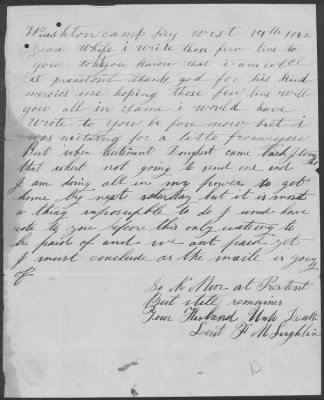 camp key west 19th 1862
Deare Whife i write those few lins to
you to let you know that i am well
at preasent thank god for his kind
mercies me hoping these few lins will
you all in Same i would have
wrote to you be fore now but i
was waiting for a letter from you
But when Lieutinant came back
that whent not going to send one and
I am doing all in my power to get
home by next saturday but it is most
a thing imposeuple to do I woud have
to you before this only waiting to
be paid of and we ant paid yet
I must conclude as the maile is going
of
So No Moor at Preasent
But still remaines
Your Husband Unto Death
Leiut F McLughlin